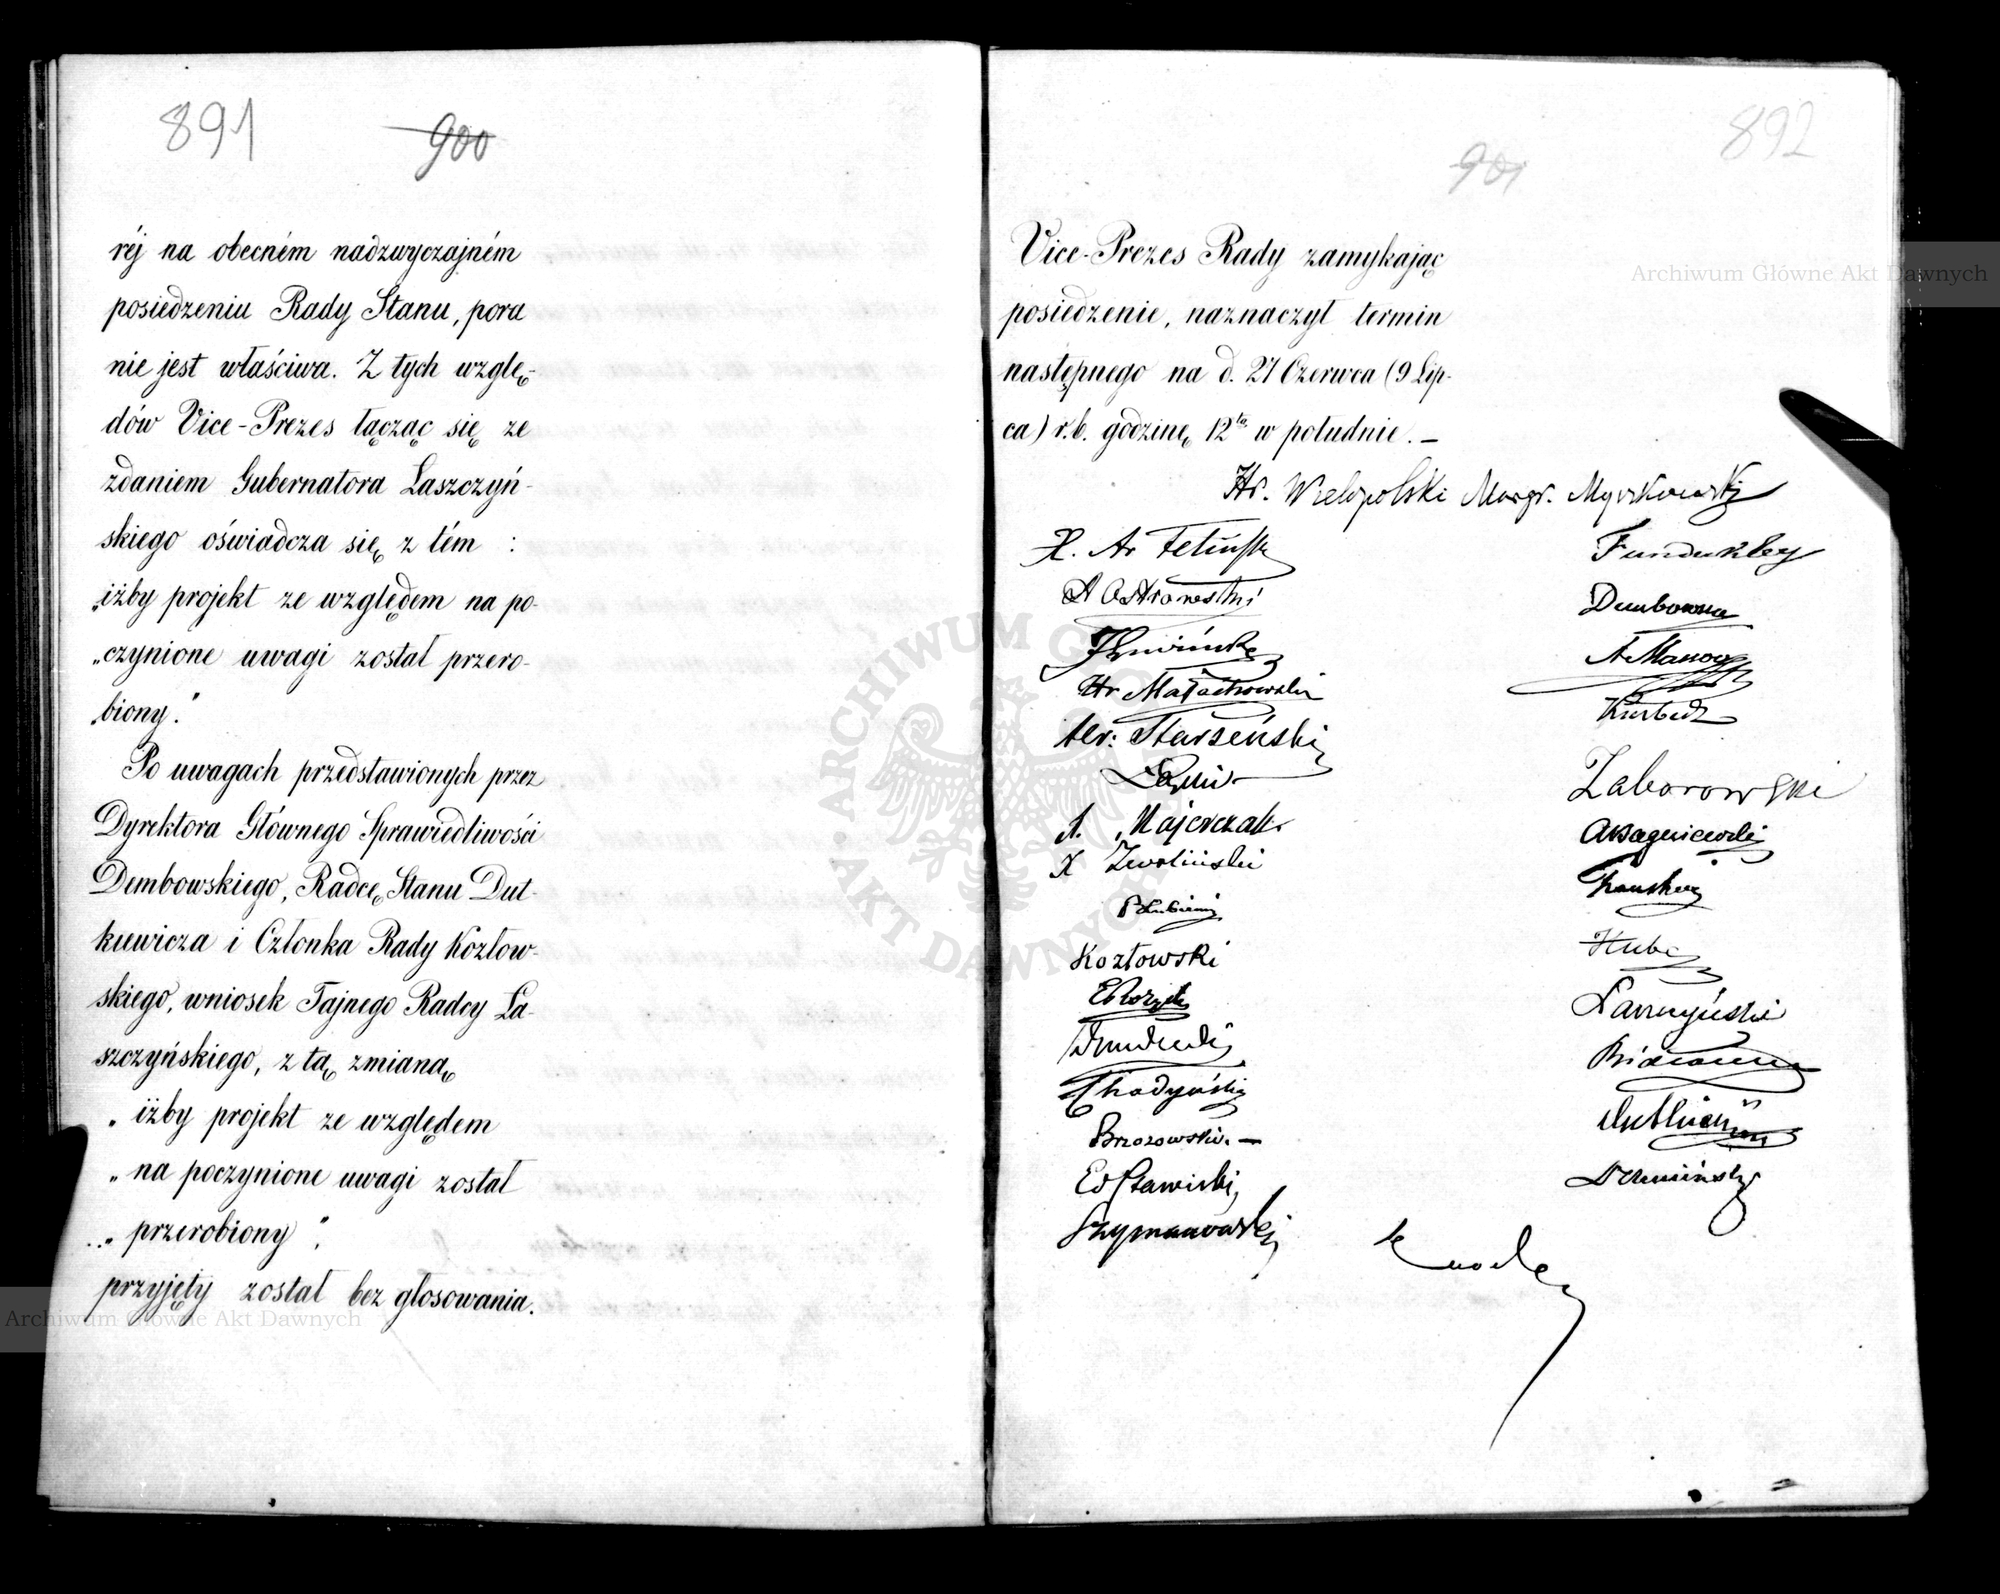 891
900
réj na obecném nadzwyczajném
posiedzeniu Rady Stanu, pora
nie jest właściwa. Z tych wzglę-
dów Vice-Prezes łącząc się ze
zdaniem Gubernatora Łaszczyń-
skiego oświadcza się z tém :
„iżby projekt ze względem na po-
„czynione uwagi został przero-
„biony."
Po uwagach przedstawionych przez
Dyrektora Głównego Sprawiedliwości
Dembowskiego, Radcę Stanu Dut-
kiewicza i Członka Rady Kozłow-
skiego, wniosek Tajnego Radcy Ła-
szczyńskiego, z tą zmianą
„ iżby projekt ze względem
„ na poczynione uwagi został
„ przerobiony ".
przyjęty został bez głosowania.
892
901
Vice-Prezes Rady zamykając
posiedzenie, naznaczył termin
następnego na d. 27 Czerwca (9 Lip-
ca) r. b. godzinę 12tą w południe. —
Hr. Wielopolski Margr. Myszkowski
X. Ar Feliński
Fundukley
A Ostrowski
Dembowski
Hr Małachowski
Kierbedź
Alr: Starzeński
Zaborowski
A. Majerczak
X Zwoliński
Hube
Kozłowski
Łaszczyński
Chodyński
Brzozowski. —
Szymanowski
Archiwum Główne Akt Dawnych
ARCHIWUM GŁÓWNE AKT DAWNYCH
Archiwum Główne Akt Dawnych